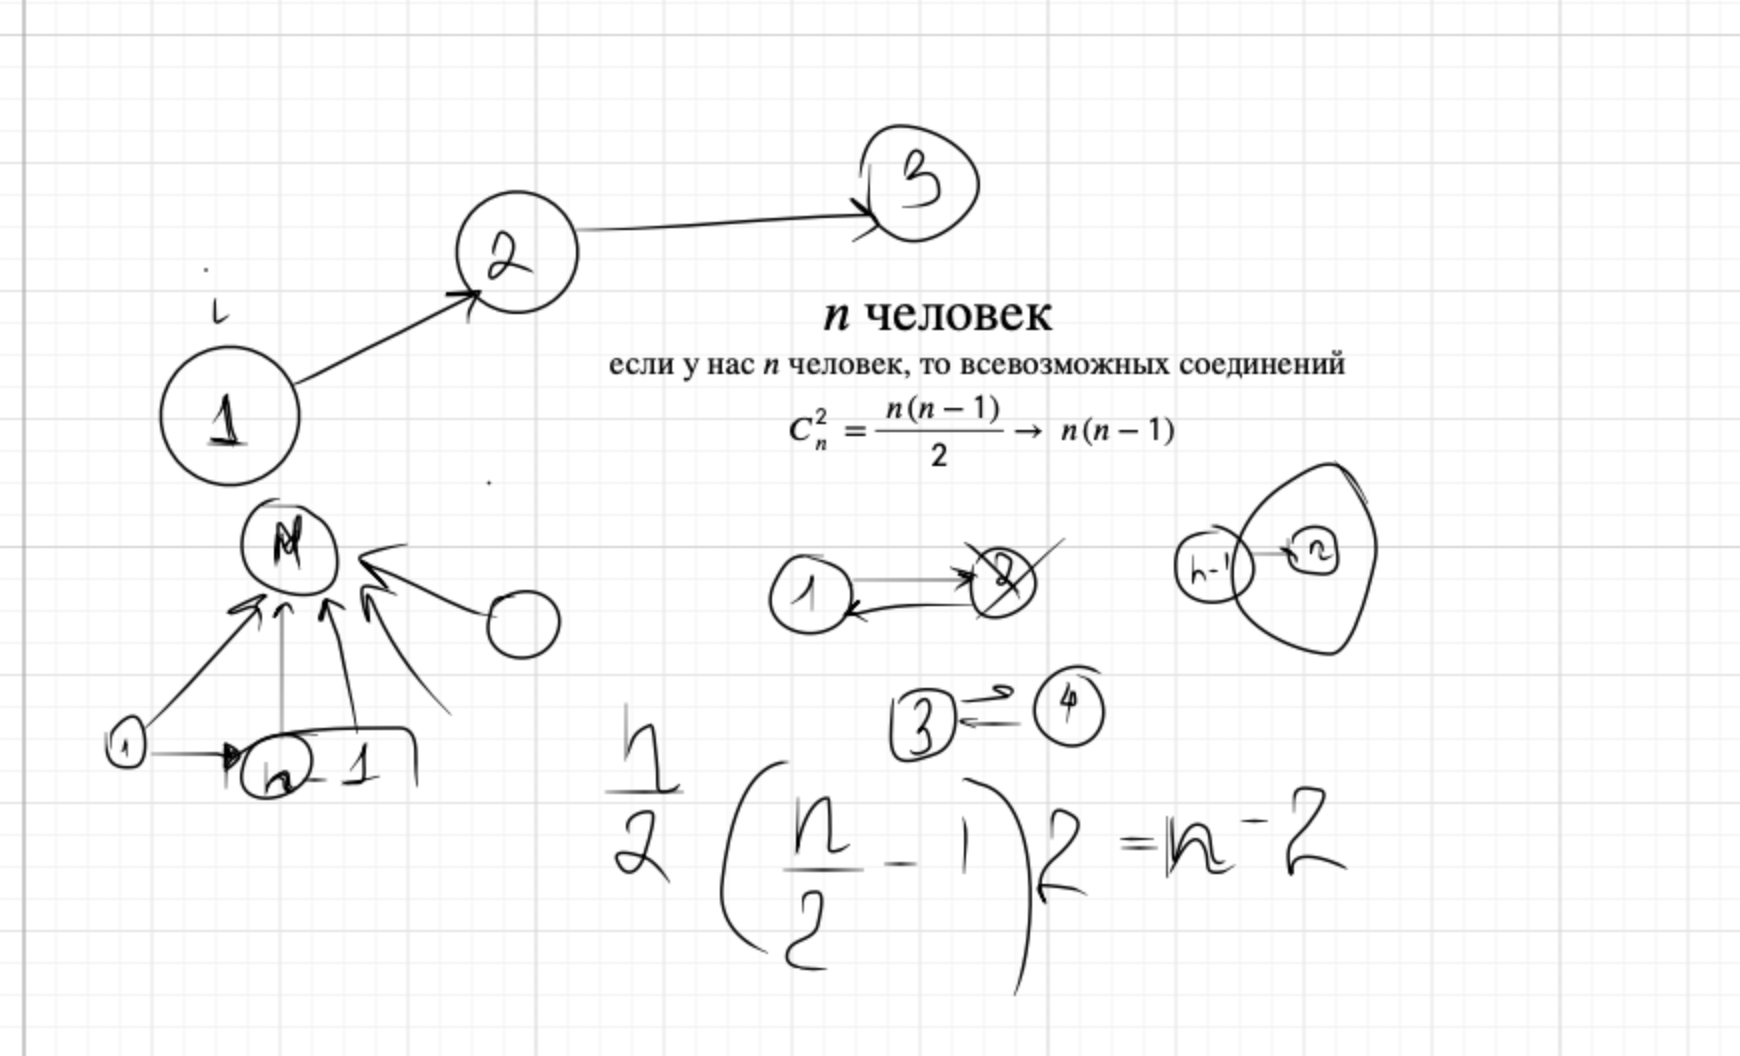 3
2
i
1
n человек
если у нас n человек, то всевозможных соединений
C_n^2 = n(n − 1)/2 → n(n − 1)
1 2
n-1 n
3 4
1 n - 1
n/2 (n/2 - 1) 2 = n - 2